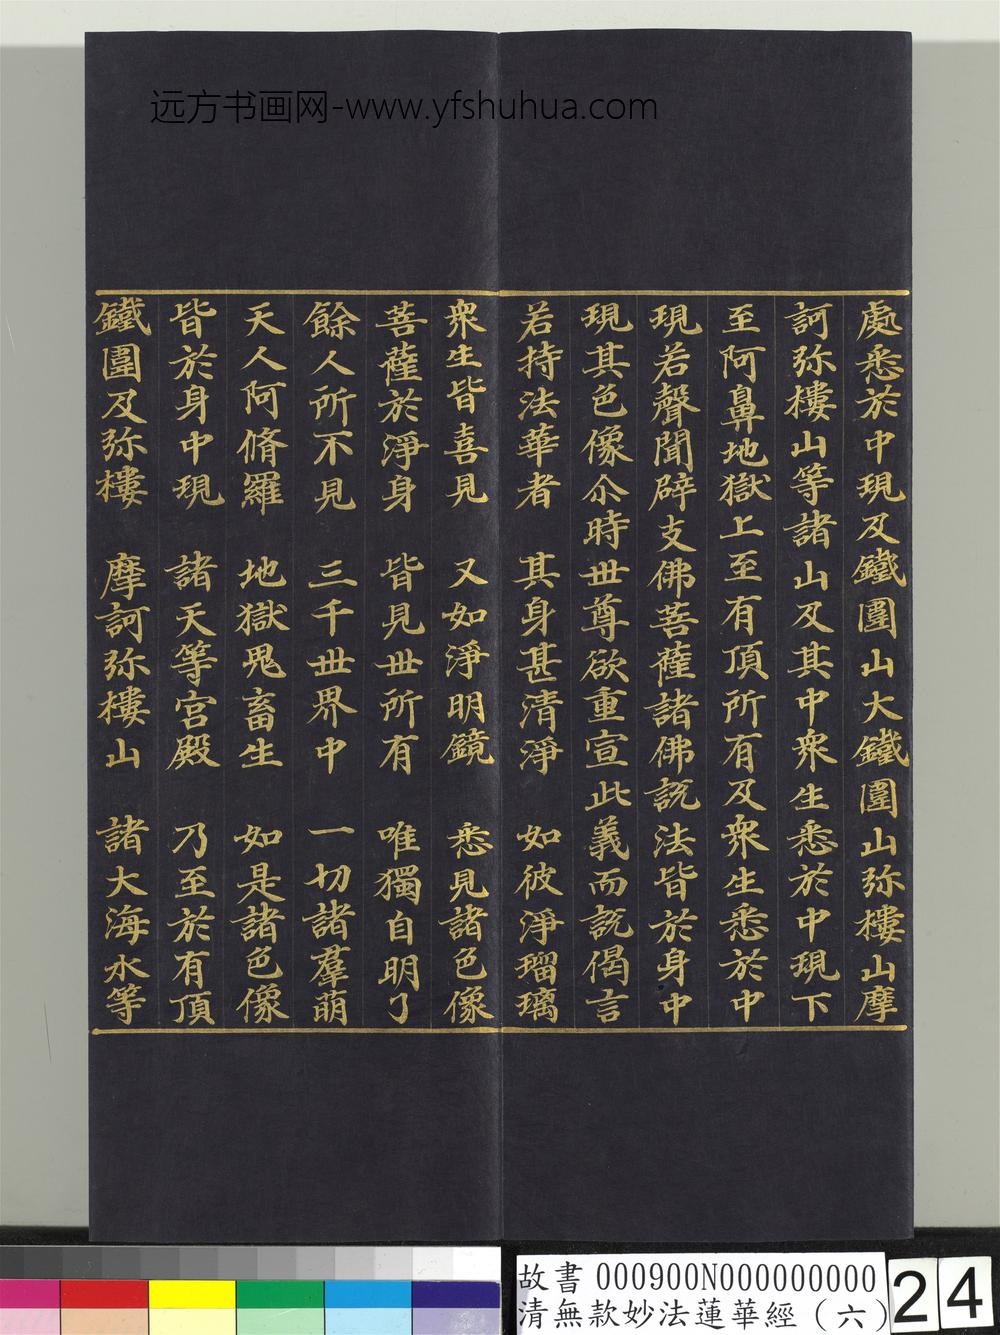 远方书画网-www.yfshuhua.com
處悉於中現及鐵圍山大鐵圍山弥樓山摩
訶弥樓山等諸山及其中衆生悉於中現下
至阿鼻地獄上至有頂所有及衆生悉於中
現若聲聞辟支佛菩薩諸佛說法皆於身中
現其色像尒時世尊欲重宣此義而說偈言
若持法華者 其身甚清淨 如彼淨瑠璃
衆生皆喜見 又如淨明鏡 悉見諸色像
菩薩於淨身 皆見世所有 唯獨自明了
餘人所不見 三千世界中 一切諸羣萌
天人阿脩羅 地獄鬼畜生 如是諸色像
皆於身中現 諸天等宮殿 乃至於有頂
鐵圍及弥樓 摩訶弥樓山 諸大海水等
故書 000900N000000000
清無款妙法蓮華經（六）
24